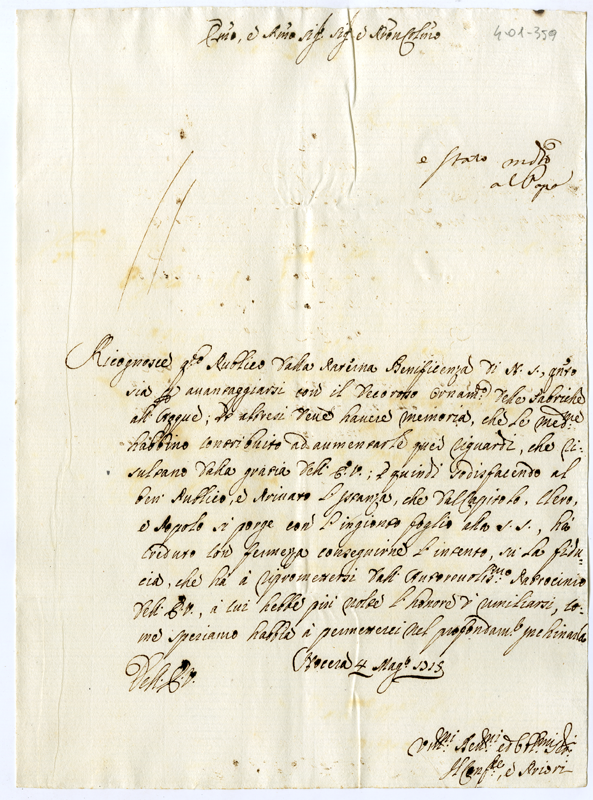 4-01-359
Emo, e Rmo Sigr. Sig. e Pron Colmo
e stato mdto
al Papa
Ricognosce qsto Publico dalla Paterna Beneficenza di N. S., qnto
sia p avantaggiarsi con il decoroso ornamto delle fabriche
all' Acque; Et altresi deve haver memoria, che le medme
habbino contribuito ad aumentarle quei riguardi, che ri-
sultano dalla gratia dell' E. V.; E quindi sodisfacendo al
ben Publico, e Privato l'Istanza, che dal Capitolo, Clero,
e Popolo si porge con l'ingionto foglio alla S. S., hà
creduto con fermezza conseguirne l'intento, sù la fidu-
cia, che hà à ripromettersi dall' Autorevolissmo Patrocinio
dell' E. V., à cui hebbe più volte l'honore d' umiliarsi, co-
me speriamo habbia à permetterci nel profondamte inchinarla
Dell' E. V.
Nocera 4 Magg. 1715
Umilmi Devmi ed Obbmi Sri.
Il Confre, e Priori